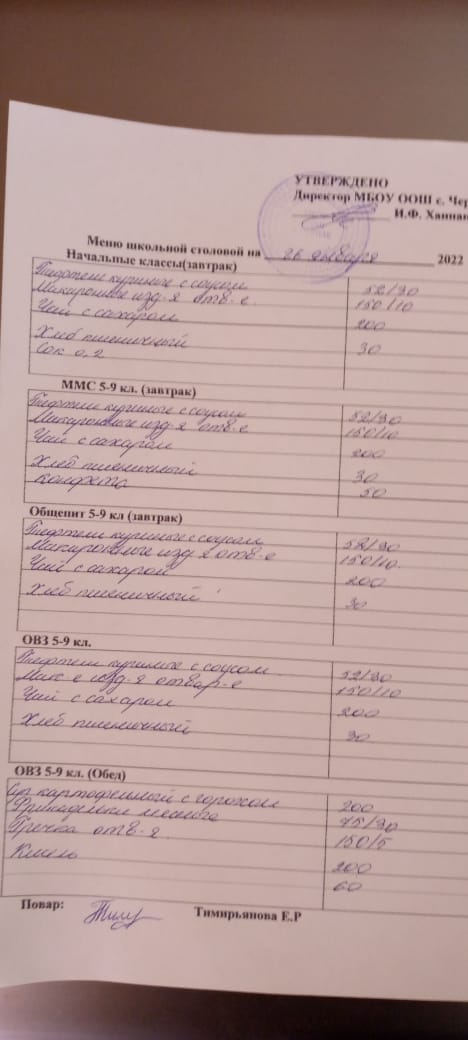 УТВЕРЖДЕНО
Директор МБОУ ООШ с. Чер
И.Ф. Ханнан
Меню школьной столовой на 26 января 2022
Начальные классы(завтрак)
Тефтели куриные с соусом 52/30
Макаронные изд-я отв-е 150/10
Чай с сахаром 200
Хлеб пшеничный 30
Сок 0,2
ММС 5-9 кл. (завтрак)
Тефтели куриные с соусом 52/30
Макаронные изд-я отв-е 150/10
Чай с сахаром 200
Хлеб пшеничный 30
конфета 50
Общепит 5-9 кл (завтрак)
Тефтели куриные с соусом 52/30
Макаронные изд-я отв-е 150/10
Чай с сахаром 200
Хлеб пшеничный 30
ОВЗ 5-9 кл.
Тефтели куриные с соусом 52/30
Мак-е изд-я отвар-е 150/10
Чай с сахаром 200
Хлеб пшеничный 30
ОВЗ 5-9 кл. (Обед)
Суп картофельный с горохом 200
Фрикадельки 75/30
Гречка отв-я 150/5
Кисель 200
60
Повар: Тимирьянова Е.Р